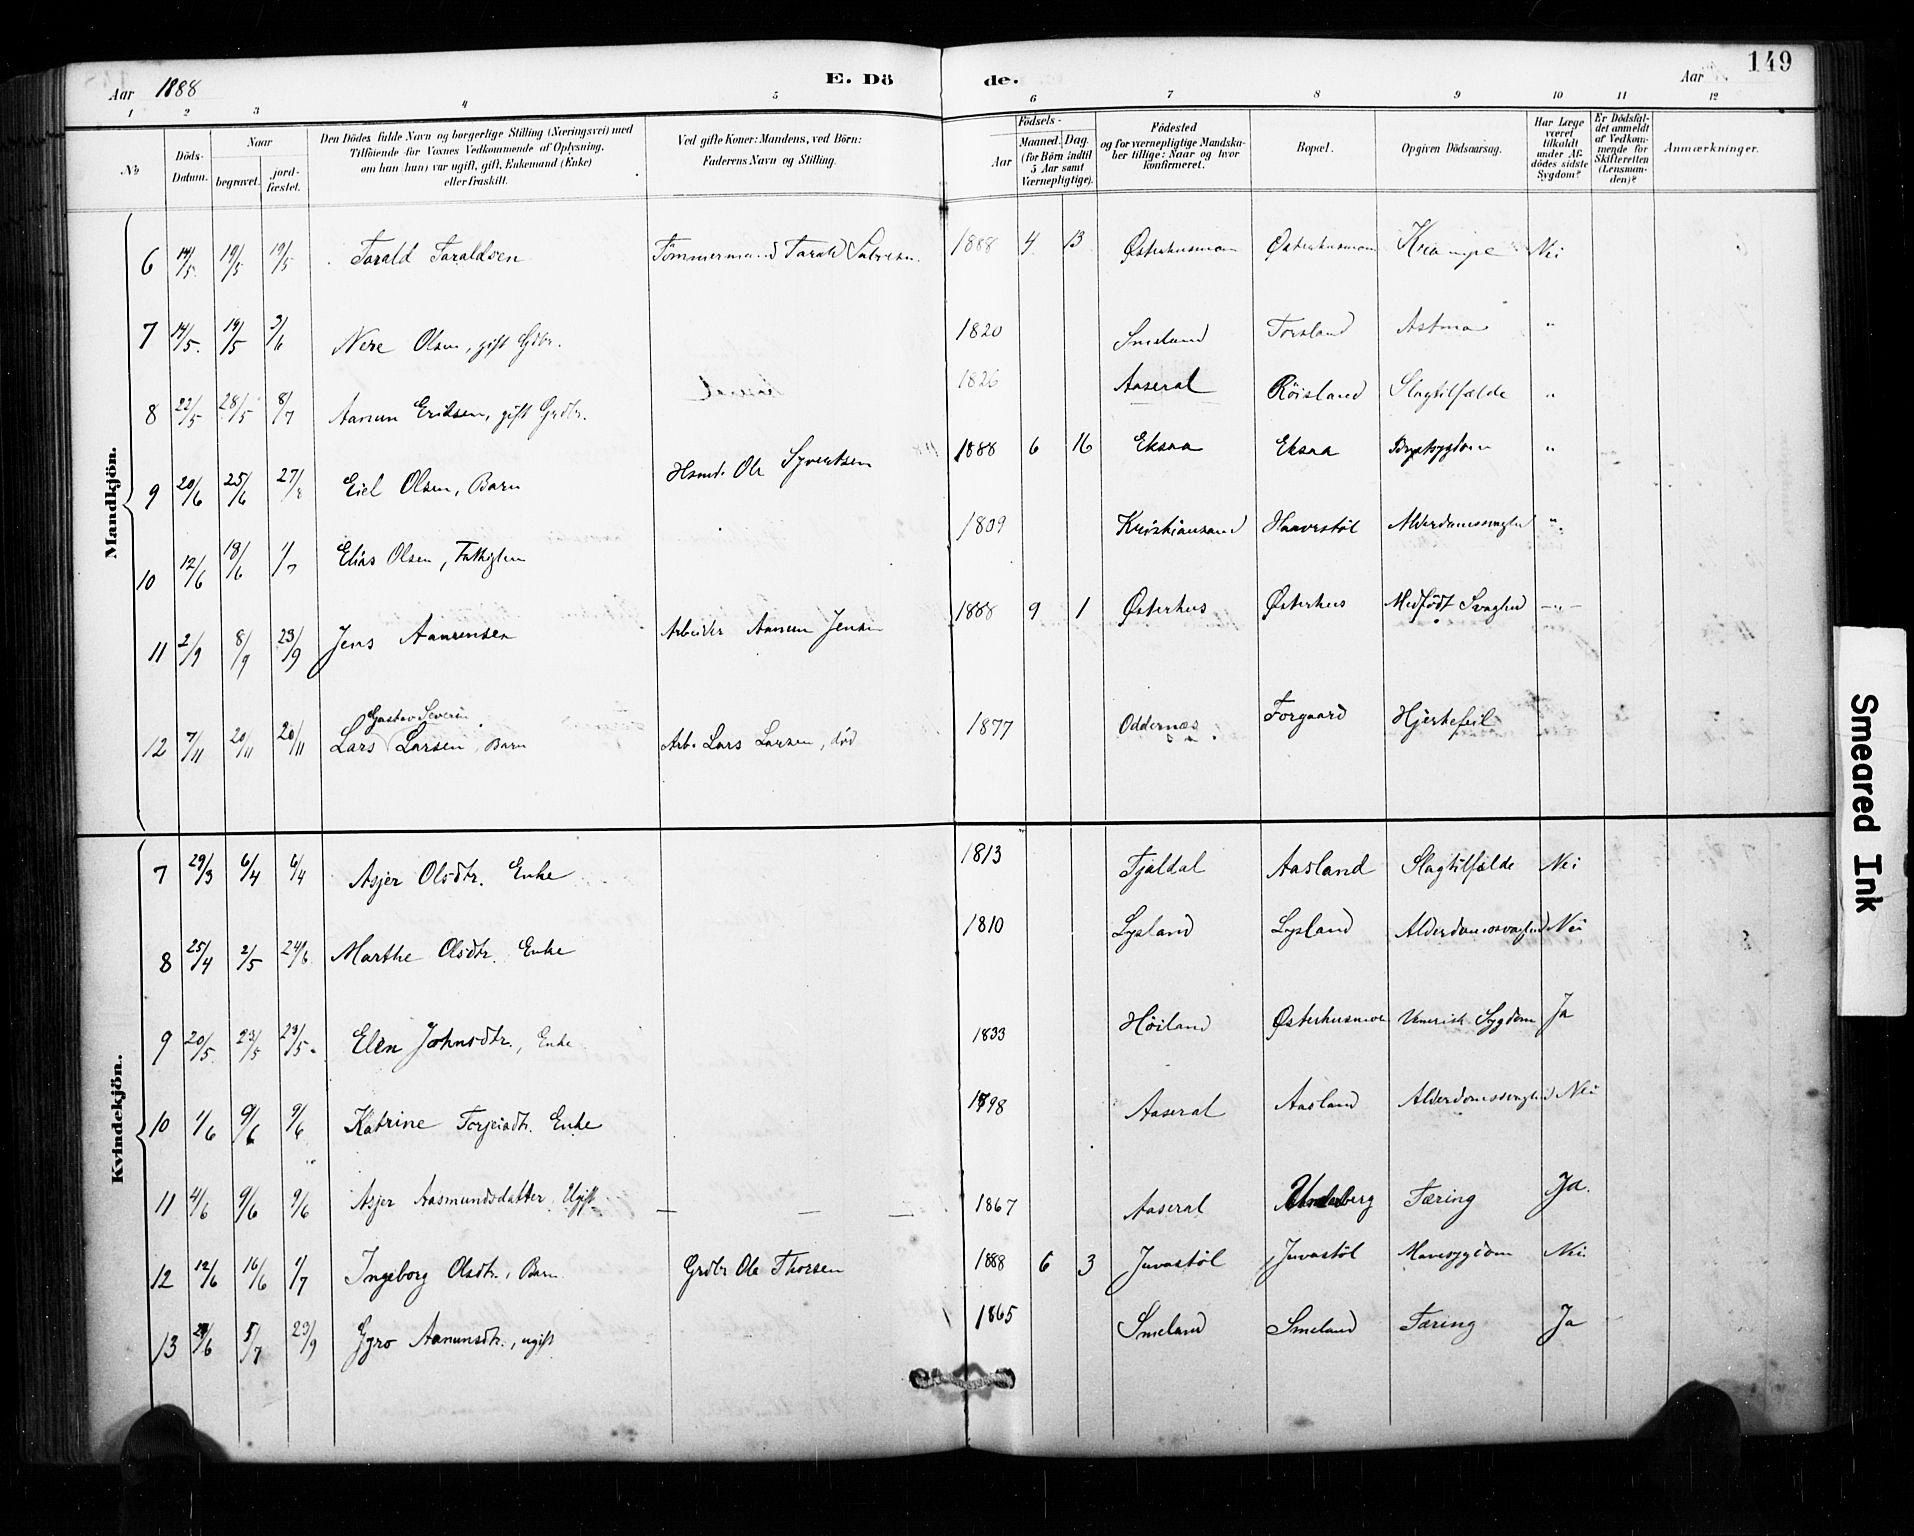 149
Aar 1888 E. Dö de. Aar
1 2 3 4 5 6 7 8 9 10 11 12
№ Döds-Datum. Naar begravet. jord-fæstet. Den Dödes fulde Navn og borgerlige Stilling (Næringsvei) med Tilföiende for Voxnes Vedkommende af Oplysning, om han (hun) var ugift, gift, Enkemand (Enke) eller fraskilt. Ved gifte Koner: Mandens, ved Börn: Faderens Navn og Stilling. Födsels- Aar Maaned. Dag. (for Börn indtil 5 Aar samt Værnepligtige). Födested og for værnepligtige Mandskaber tillige: Naar og hvor konfirmeret. Bopæl. Opgiven Dödsaarsag. Har Læge været tilkaldt under Afdödes sidste Sygdom? Er Dödsfaldet anmeldt af Vedkommende for Skifteretten (Lensmanden)? Anmærkninger.
Mandkjön.
6 14/5. 19/5 19/5 Tarald Taraldsen Tömmermand Tarald Salvesen 1888 4 13 Østerhusmon Østerhusmon Krampe Nei
7 14/5. 19/5 3/6 Nere Olsen, gift Gdbr. 1820 Smeland Torsland Astma "
8 22/5 28/5 8/7 Aanun Eriksen, gift Grdbr. 1826 Aaseral Röisland Slagtilfælde "
9 20/6 25/6 27/8 Eiel Olsen, Barn Hsmd. Ole Syvertsen 1888 6 16 Eksaa Eksaa Brystsygdom "
10 12/6 18/6 1/7 Elias Olsen, Fattiglem 1809 Kristiansand Haaverstøl Alderdomssvaghed "
11 2/9 8/9 23/9 Jens Aanensen Arbeider Aanun Jensen 1888 9 1 Østerhus Østerhus Medfödt Svaghed -"-
12 7/11 20/11 20/11 Lars Gustav Severin Larsen, Barn Arb. Lars Larsen, död 1877 Oddernæs Forgaard Hjertefeil
Kvindekjön.
7 29/3 6/4 6/4 Asjer Olsdtr. Enke 1813 Fjaldal Aasland Slagtilfælde Nei
8 25/4 2/5 24/6 Marthe Olsdtr. Enke 1810 Lysland Lysland Alderdomssvaghed Nei
9 20/5. 23/5 23/5. Elen Johnsdtr., Enke 1833 Höiland Østerhusmoe Venerisk Sygdom Ja
10 1/6 9/6 9/6 Katrine Torjeisdtr. Enke 1798 Aaseral Aasland Alderdomssvaghed Nei
11 4/6 9/6 9/6 Asjer Aasmundsdatter. Ugift — — — 1867 Aaseral Tæring Ja.
12 12/6 16/6 1/7 Ingeborg Olsdtr., Barn Grdbr Ole Thorsen 1888 6 3 Juvastöl Juvastöl Mavesygdom Nei
13 /6 5/7 23/9 Gyro Aanunsdtr., ugift 1865 Smeland Smeland Tæring Ja
Smeared Ink